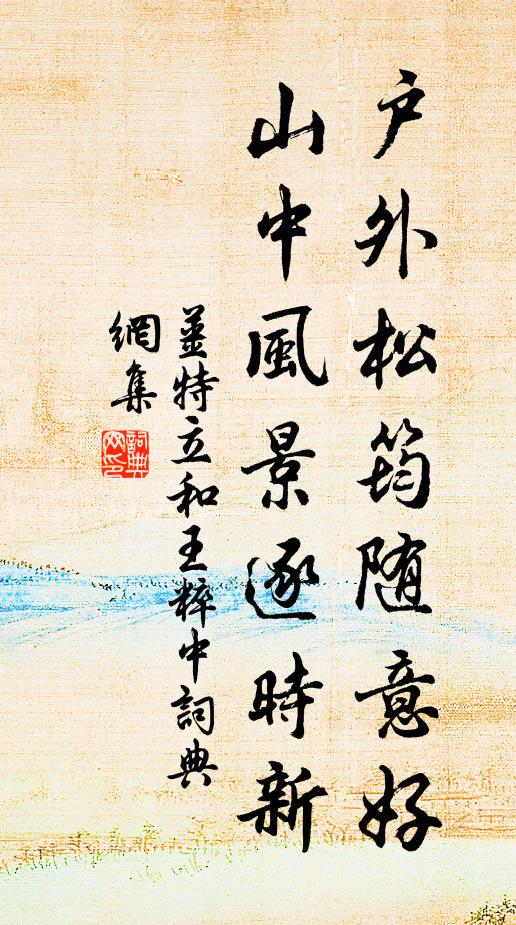 户外松筠随意好
山中風景逐時新
薑特立和王粹中詞典
網集
詞典
网印